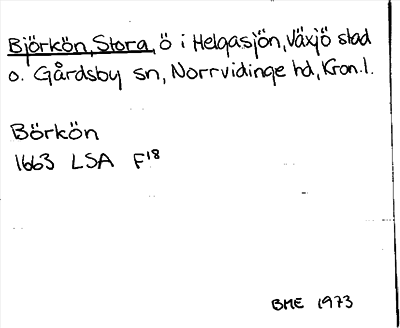 Björkön, Stora, ö i Helgasjön, Växjö stad
o. Gårdsby sn, Norrvidinge hd, Kron. l.
Börkön
1663 LSA F18
BME 1973